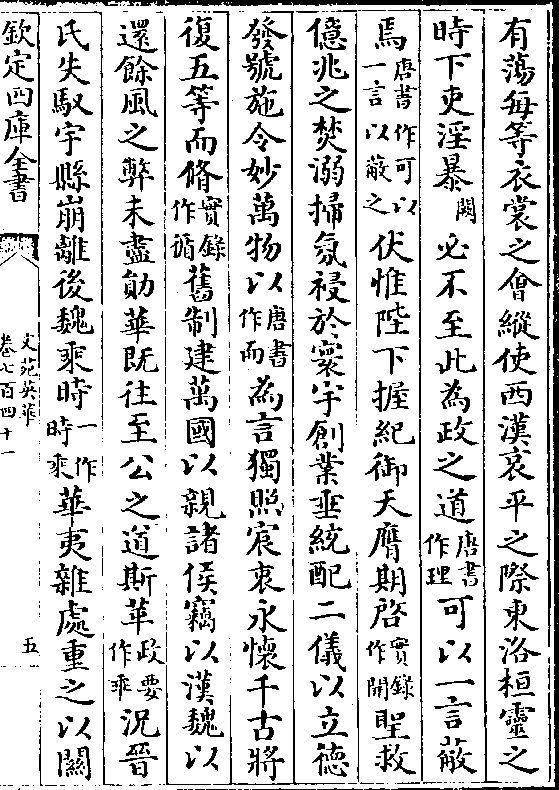 有蕩每等衣裳之㑹縱使西漢哀平之際東洛桓靈之
時下吏淫暴闕必不至此為政之道唐書作理可以一言蔽
焉唐書作可以一言以蔽之伏惟陛下握紀御天膺期啓實錄作開聖救
億兆之焚溺掃氛祲於寰宇創業垂統配二儀以立德
發號施令妙萬物以唐書作而為言獨照宸衷永懷千古將
復五等而脩實錄作循舊制建萬國以親諸侯竊以漢魏以
還餘風之弊未盡勛華既往至公之道斯革政要作乖況晉
氏失馭宇縣崩離後魏乘時一作時乘華夷雜處重之以關
欽定四庫全書
文苑英華
卷七百四十一
五